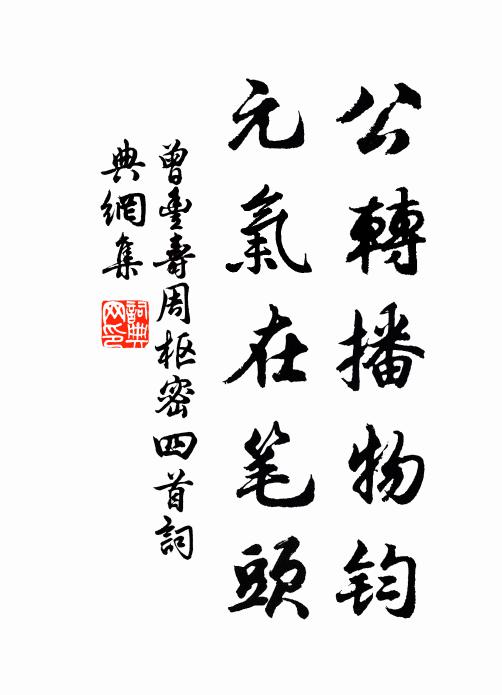 公轉播物鈞
元氣在笔頭
曾豊壽周枢密四首詞
典網集
詞典网印